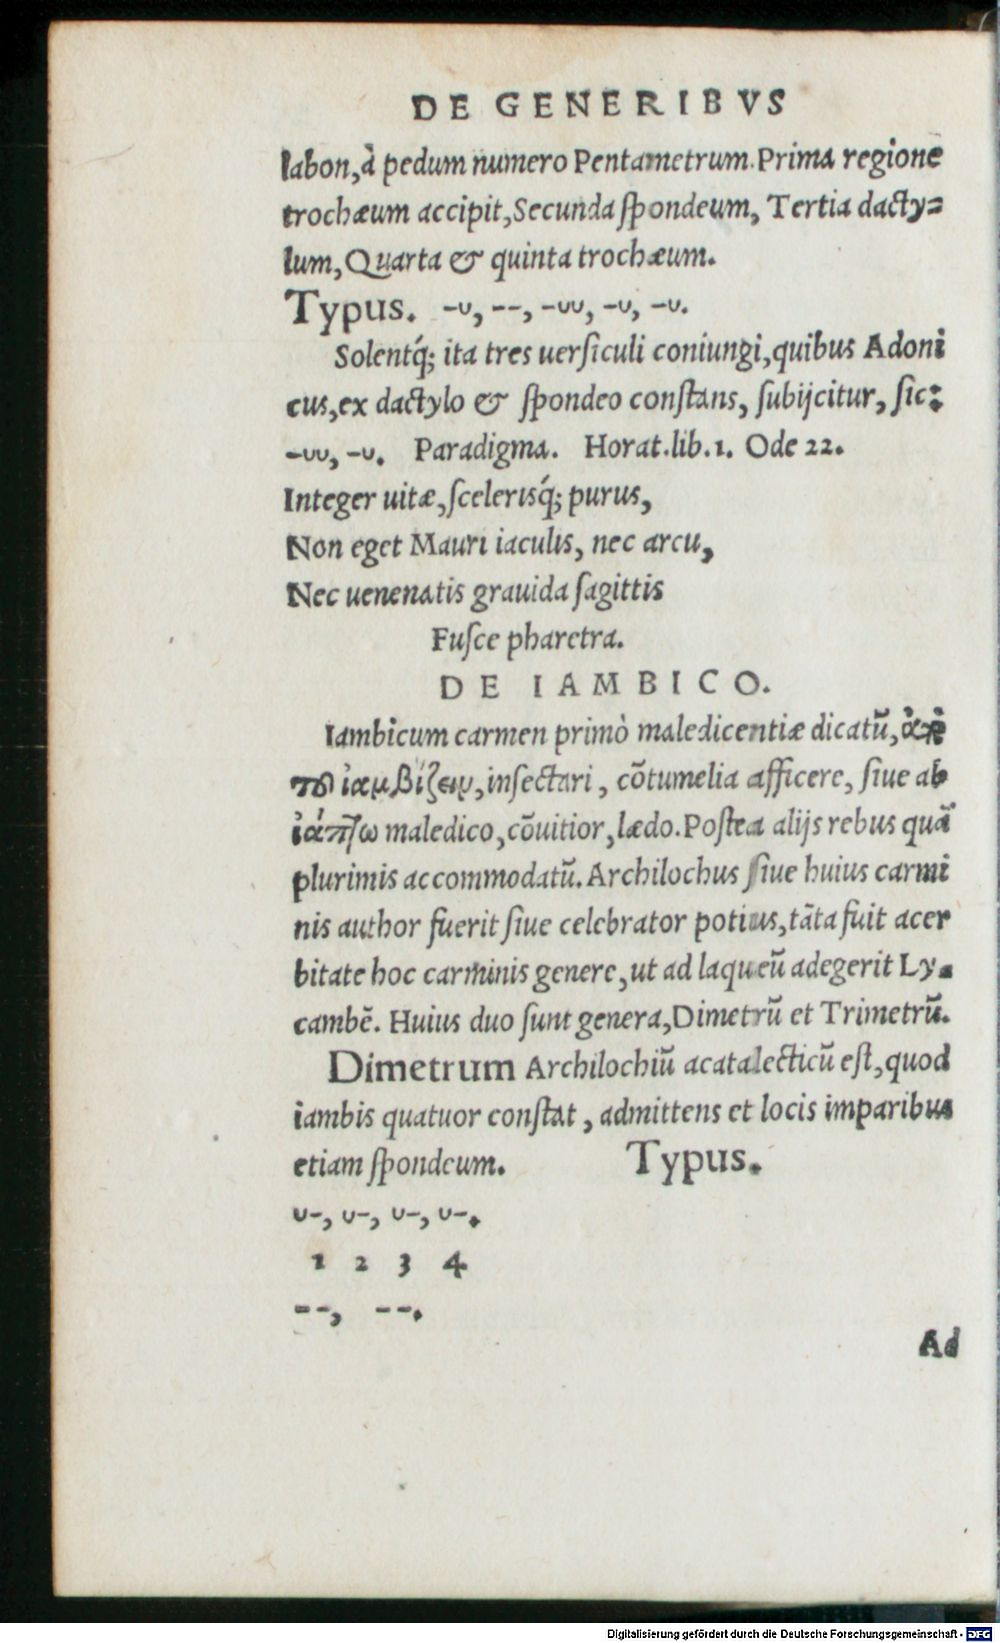 DE GENERIBVS
labon,à pedum numero Pentametrum.Prima regione
trochæum accipit,Secunda ſpondeum, Tertia dacty=
lum,Quarta & quinta trochæum.
Typus. –υ, ––, –υυ, –υ, –υ.
Solentq́; ita tres uerſiculi coniungi,quibus Adoni
cus,ex dactylo & ſpondeo conſtans, ſubijcitur, ſic:
–υυ, –υ. Paradigma. Horat.lib.1. Ode 22.
Integer uitæ,ſcelerisq́; purus,
Non eget Mauri iaculis, nec arcu,
Nec uenenatis grauida ſagittis
Fuſce pharetra.
DE IAMBICO.
Iambicum carmen primò maledicentiæ dicatũ,ἀπὸ
τοῦ ἰαμβίζειν,inſectari, cõtumelia afficere, ſiue ab
ἰάπτω maledico,cõuitior,lædo.Poſtea alijs rebus quã
plurimis accommodatũ.Archilochus ſiue huius carmi
nis author fuerit ſiue celebrator potius,tãta fuit acer
bitate hoc carminis genere,ut ad laqueũ adegerit Ly=
cambẽ. Huius duo ſunt genera,Dimetrũ et Trimetrũ.
Dimetrum Archilochiũ acatalecticũ eſt,quod
iambis quatuor conſtat, admittens et locis imparibus
etiam ſpondeum. Typus.
υ–, υ–, υ–, υ–.
1 2 3 4
––, ––.
Ad
Digitalisierung gefördert durch die Deutsche Forschungsgemeinschaft - DFG